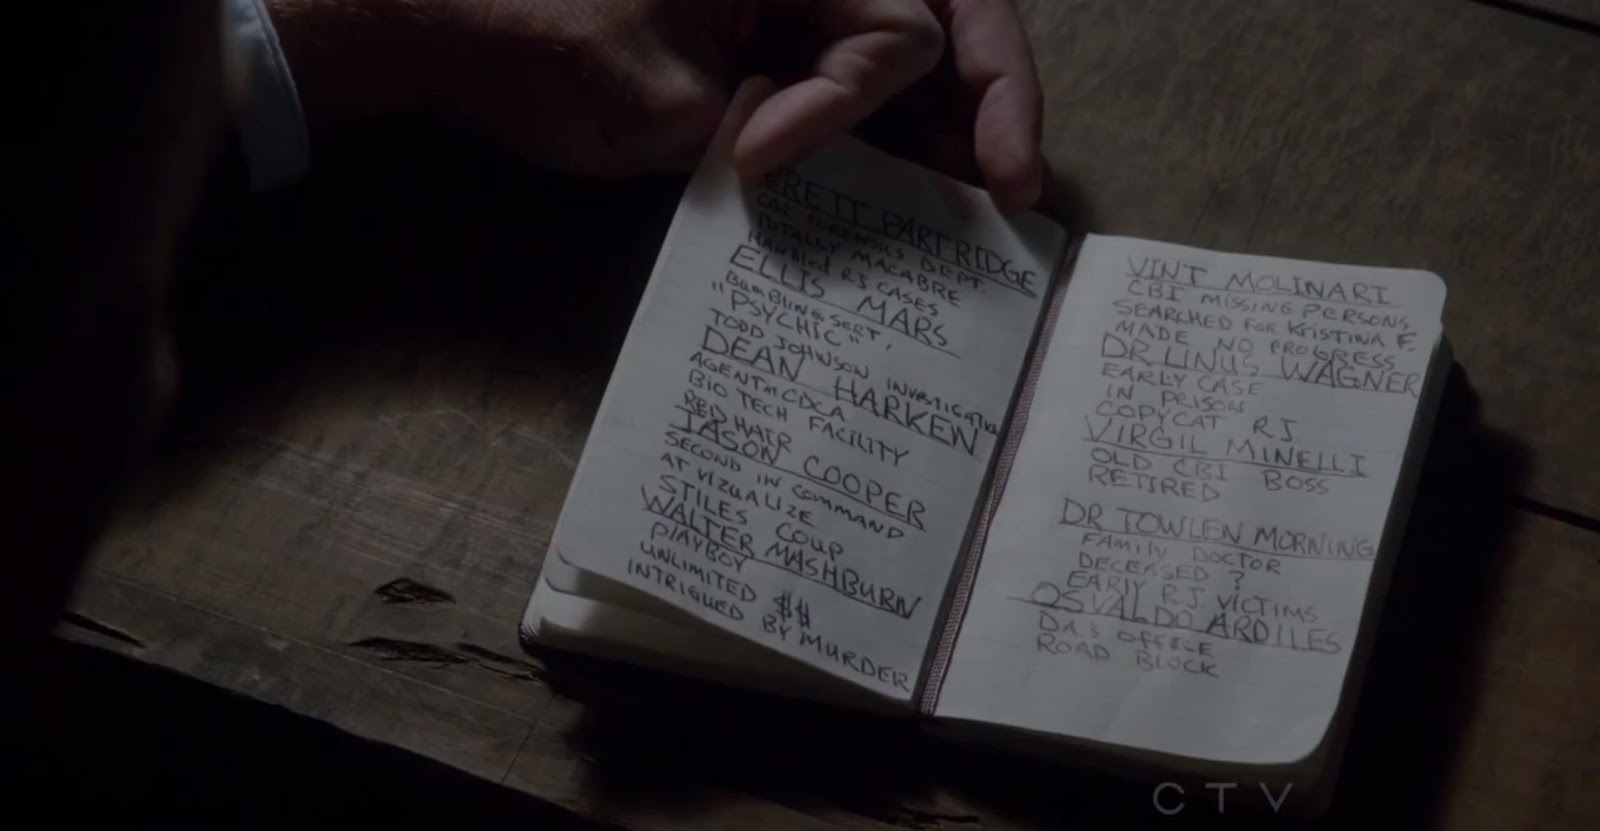 BRETT PARTRIDGE
CBI FORENSICS DEPT.
TOTALLY MACABRE
HANDLED RJ CASES
ELLIS MARS
BUMBLING SORT,
"PSYCHIC"
TODD JOHNSON INVESTIGATION
DEAN HARKEN
AGENT at CDCA
BIO TECH FACILITY
RED HAIR
JASON COOPER
SECOND IN COMMAND
AT VIZUALIZE
STILES COUP
WALTER MASHBURN
PLAYBOY
UNLIMITED $$
INTRIGUED BY MURDER
VINT MOLINARI
CBI MISSING PERSONS
SEARCHED FOR KRISTINA F.
MADE NO PROGRESS
DR LINUS WAGNER
EARLY CASE
IN PRISON
COPYCAT R.J.
VIRGIL MINELLI
OLD CBI BOSS
RETIRED
DR TOWLEN MORNING
FAMILY DOCTOR
DECEASED?
EARLY R.J. VICTIMS
OSVALDO ARDILES
D.A.'S OFFICE
ROAD BLOCK
CTV